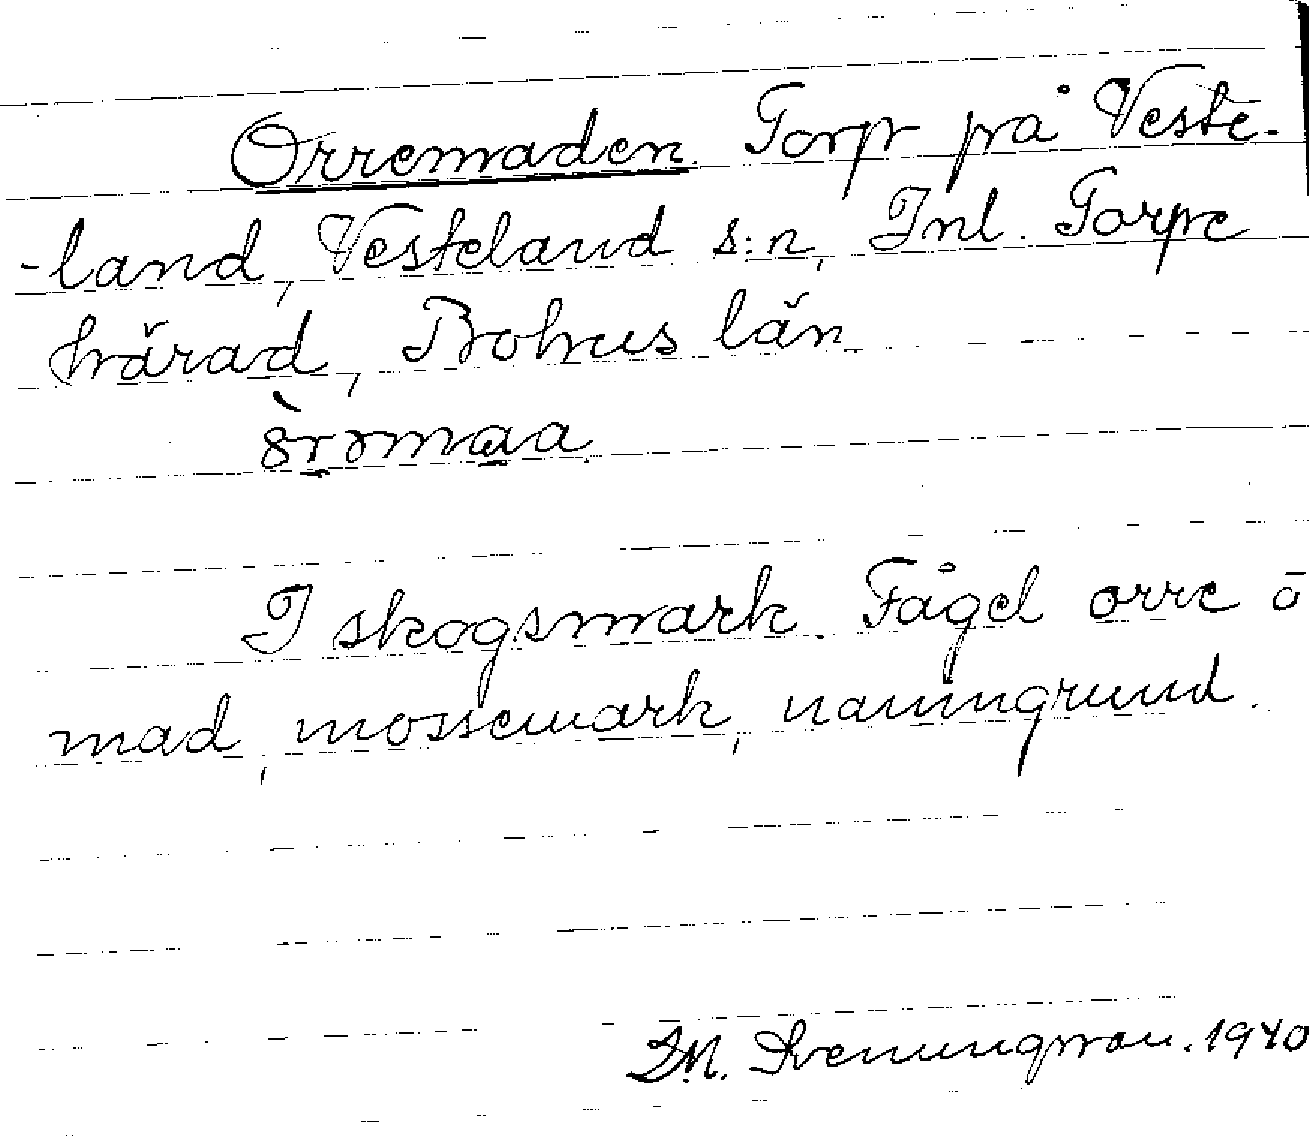 Orremaden. Torp på Veste-
-land, Vesteland s:n, Inl. Torpe
härad, Bohus län.
I skogsmark. Fågel orre o
mad, mossemark, namngrund.
Svenungsson. 1940